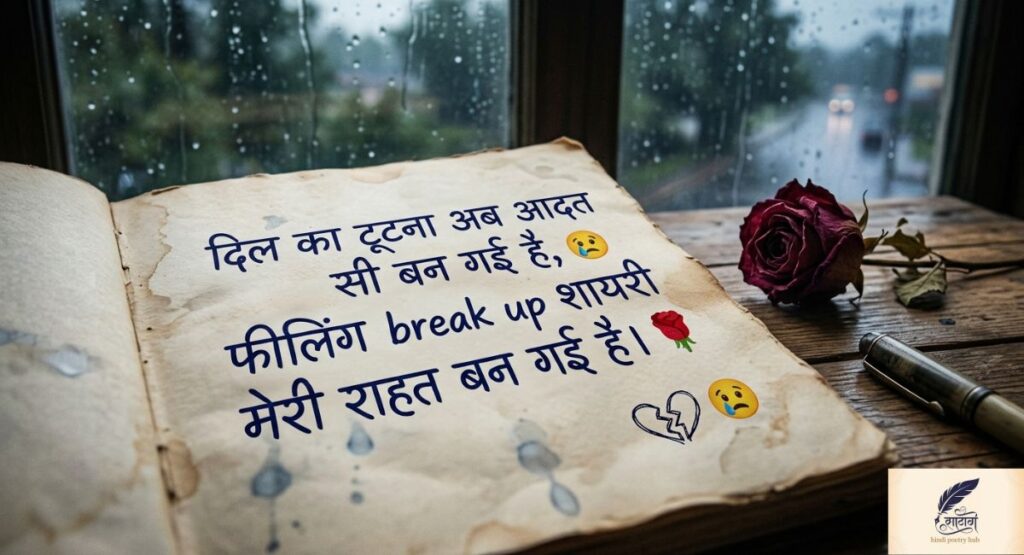 दिल का टूटना अब आदत
सी बन गई है, 😢
फीलिंग break up शायरी
मेरी राहत बन गई है। 🌹
💔 😢
hindi poetry hub